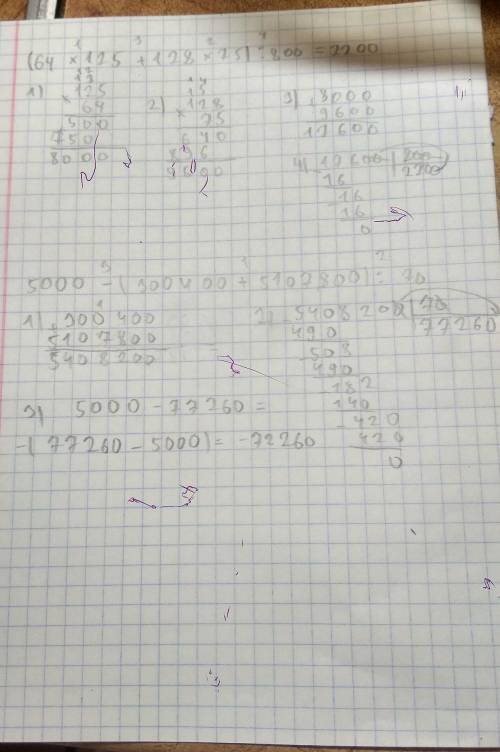 (64 × 125 + 128 × 75) : 800 = 2200
1) 125
× 64
500
750
8000
2) 128
× 75
640
896
9600
3) 8000
9600
17600
4) 17600 | 800
2200
16
16
16
0
5000 - (300400 + 5107800) : 70
1) 300 400
5107800
5408200
2) 5408200 | 70
77260
490
508
490
182
140
420
420
0
3) 5000 - 77260 =
-(77260 - 5000) = -72260